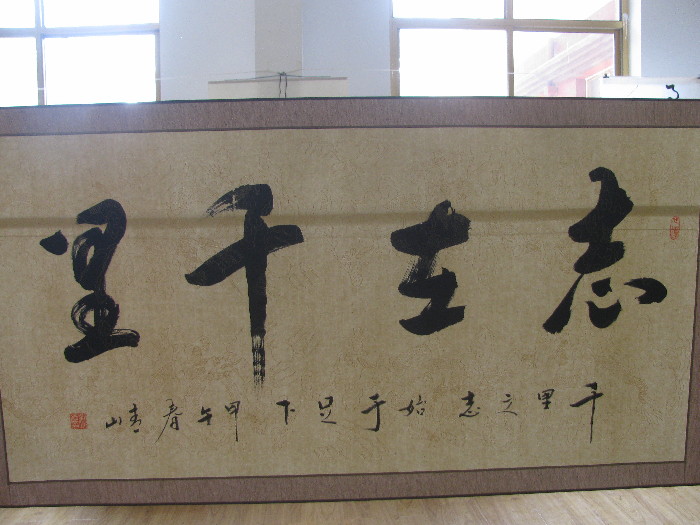 志在千里
千里之志始于足下甲午春靖山